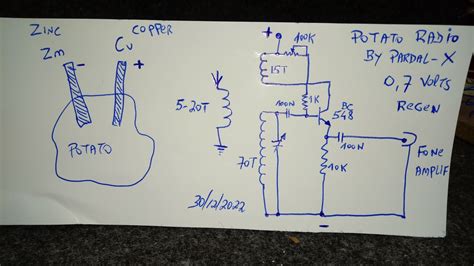 ZINC
COPPER
Zm
Cu
- +
POTATO
5-20T
30/12/2022
+
100K
15T
1K
100N
BC
548
70T
100N
10K
-
POTATO RADIO
BY PARDAL-X
0,7 VOLTS
REGEN
FONE
AMPLIF